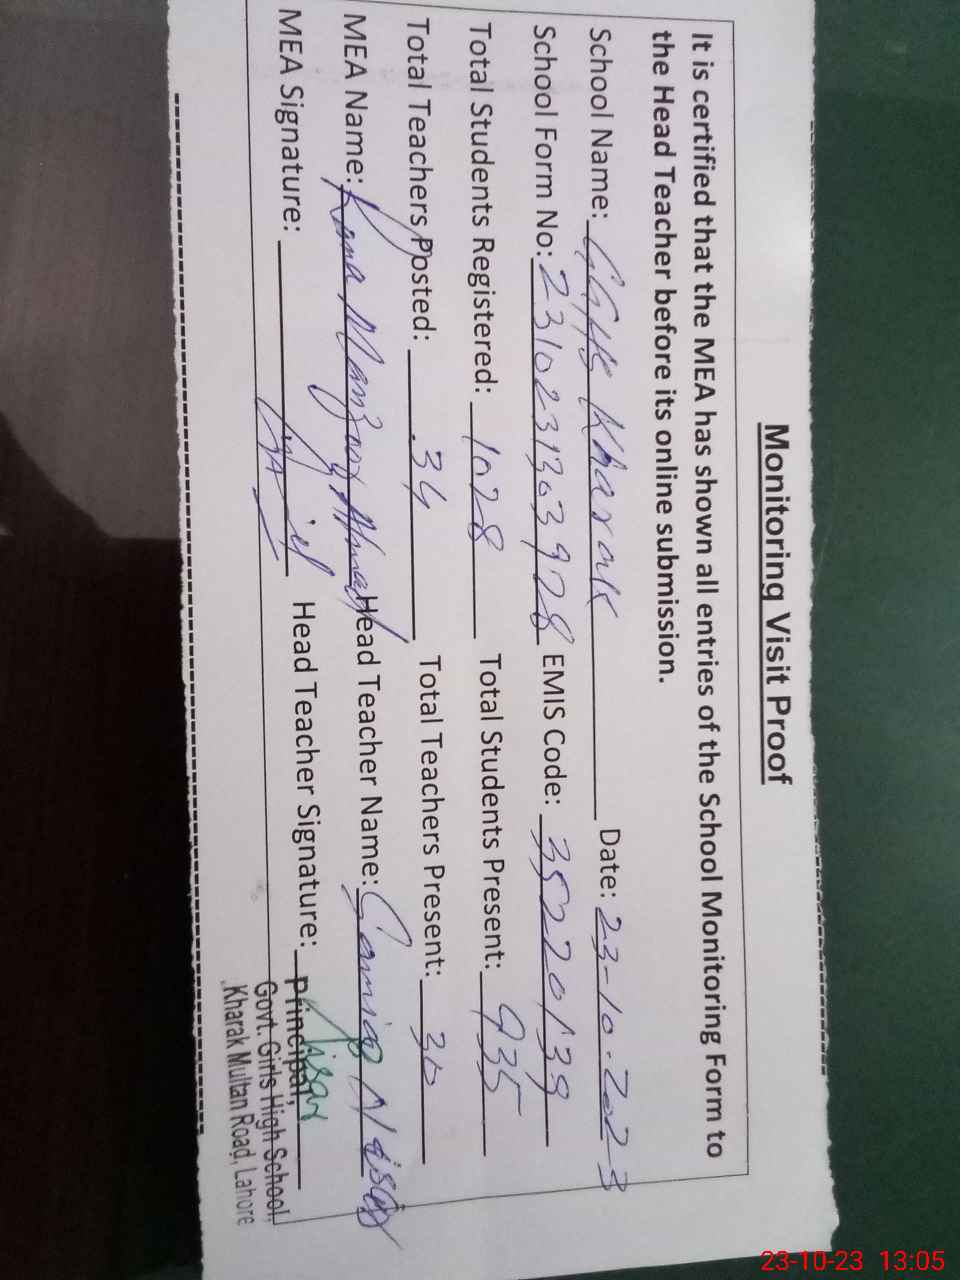 Monitoring Visit Proof
It is certified that the MEA has shown all entries of the School Monitoring Form to
the Head Teacher before its online submission.
School Name: GGHS Kharak Date: 23-10-2023
School Form No: 2310231303928 EMIS Code: 35220139
Total Students Registered: 1028 Total Students Present: 935
Total Teachers Posted: 34 Total Teachers Present: 30
MEA Name: Rana Manzoor Ahmad Head Teacher Name: Samina Nisar
MEA Signature: Head Teacher Signature: Nisar
Principal,
Govt. Girls High School,
Kharak Multan Road, Lahore
23-10-23 13:05